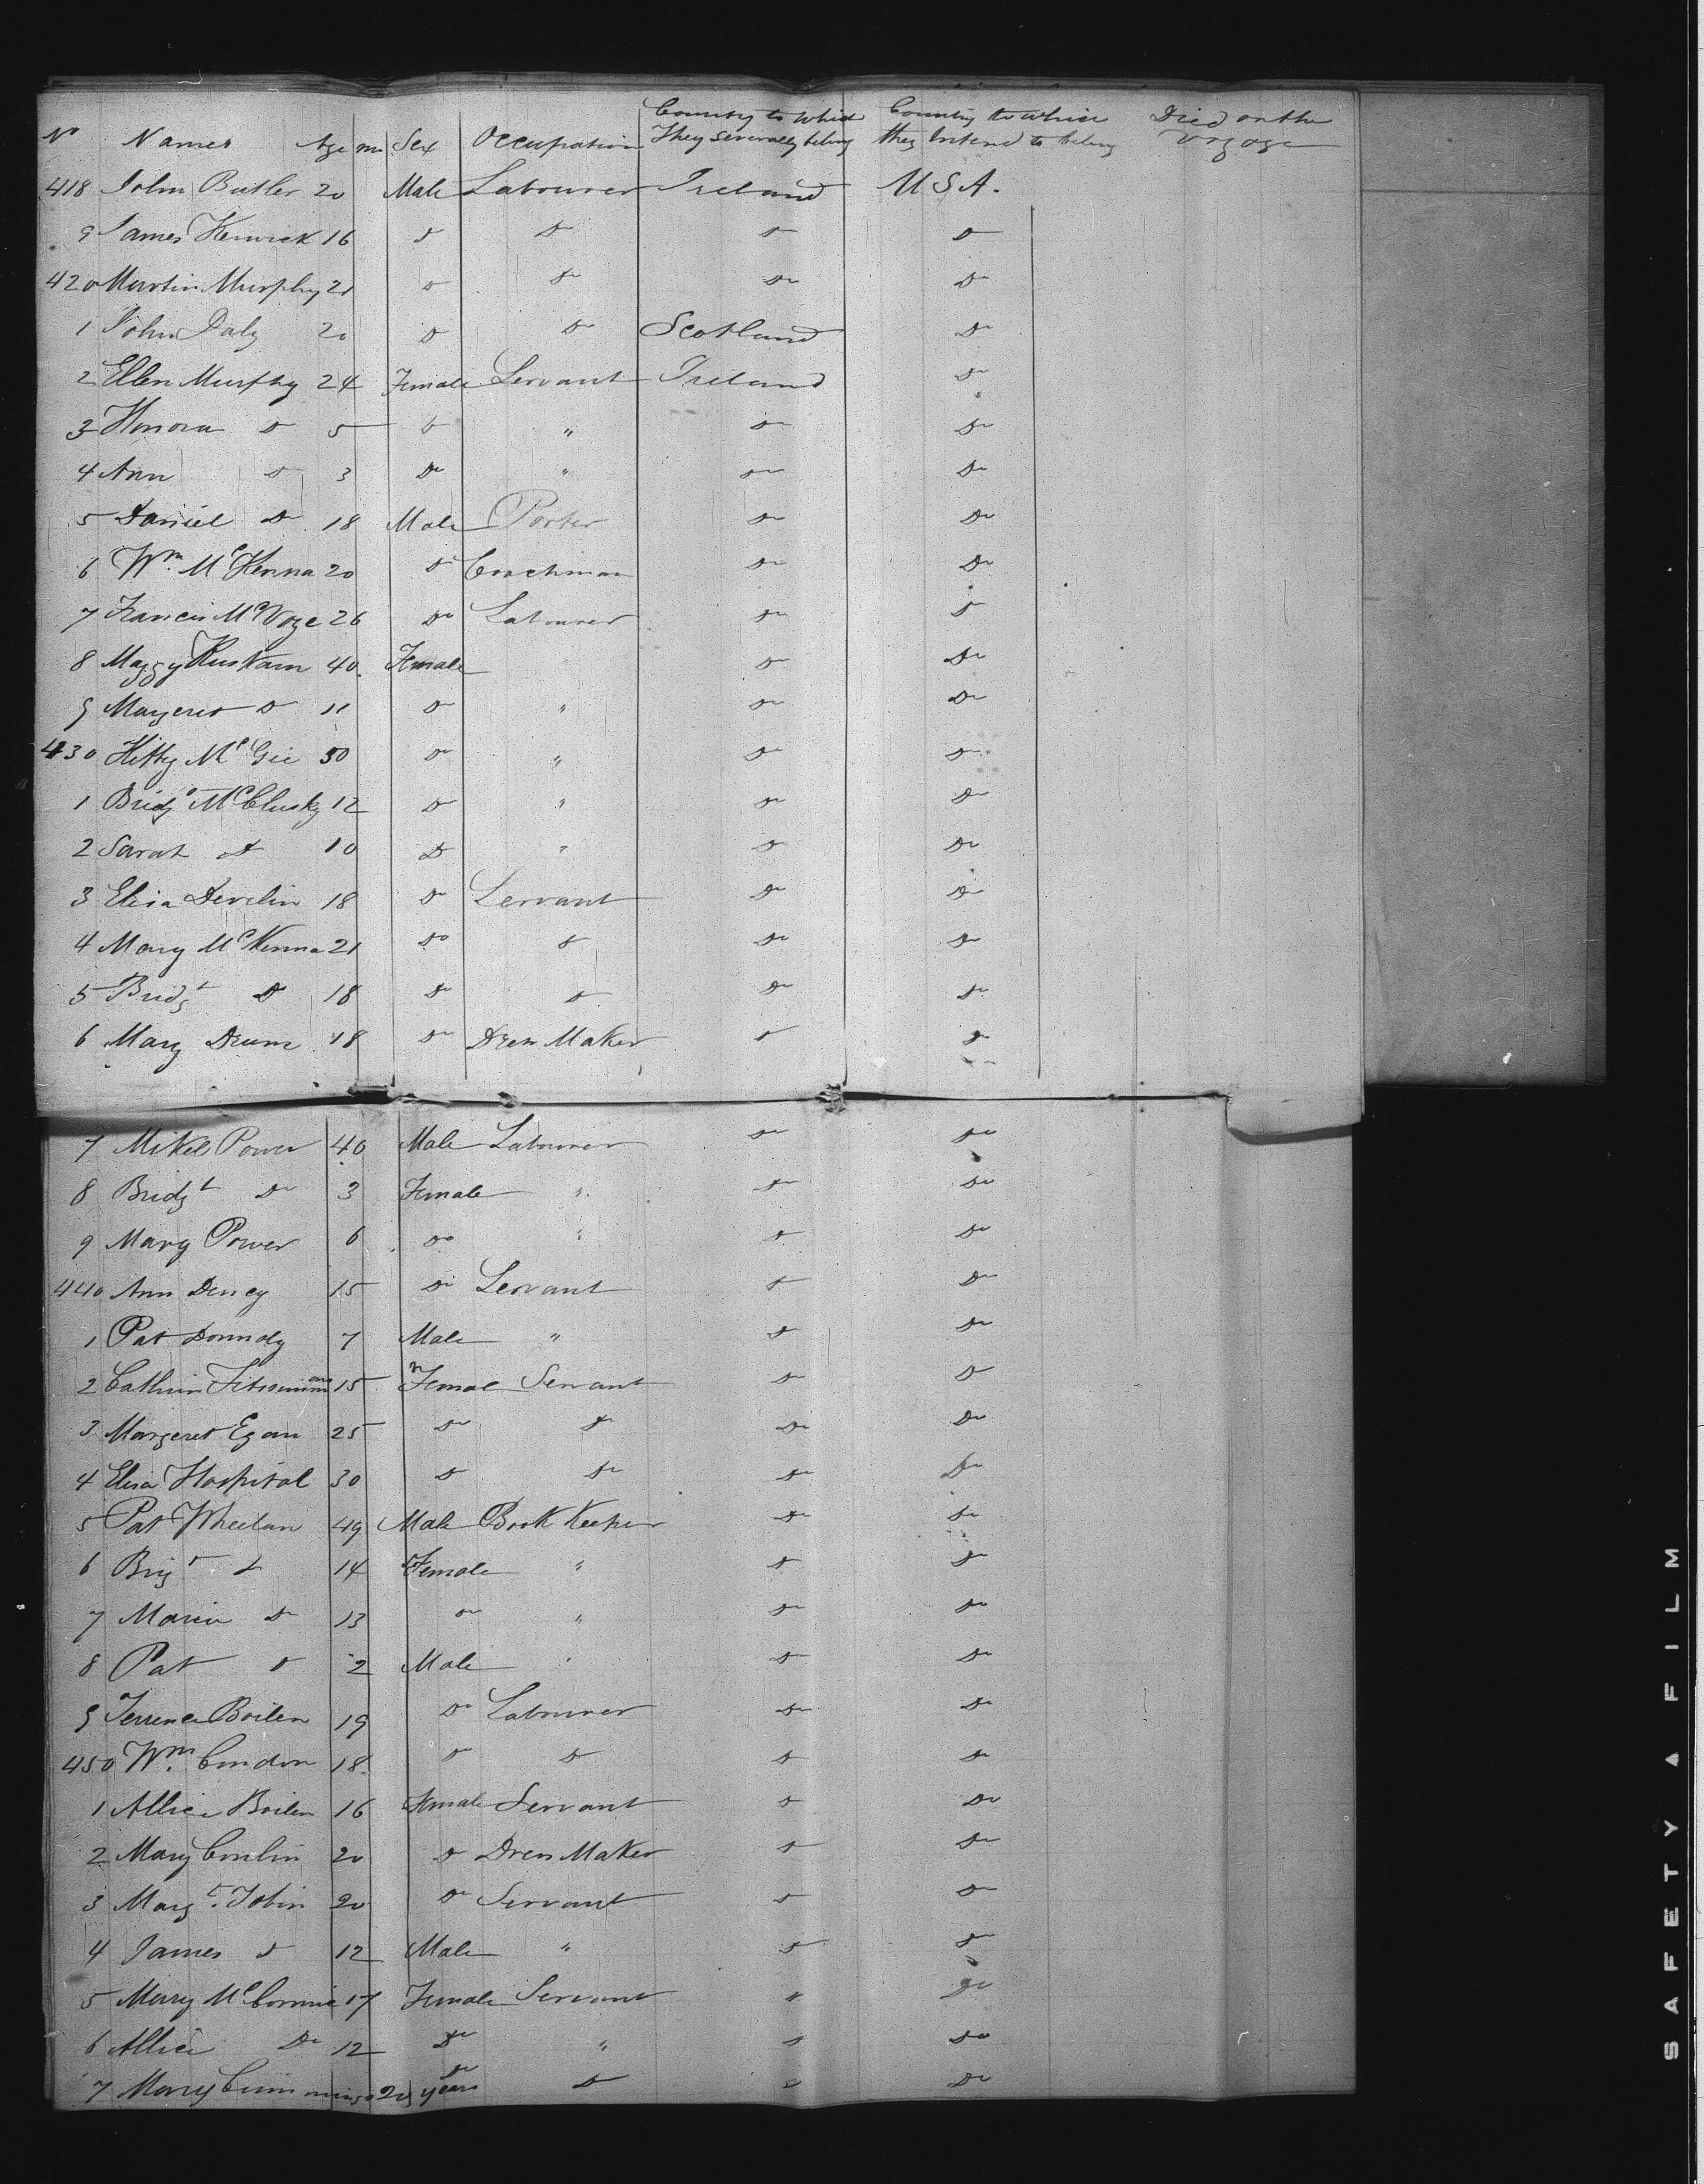 No Names Age mo Sex Occupation Country to which They severally belong Country to which they Intend to belong Died on the Voyage
418 John Butler 20 Male Labourer Ireland U S A.
9 James Kerwick 16 Do Do Do Do
420 Martin Murphy 21 Do Do Do Do
1 John Daly 20 Do Do Scotland Do
2 Ellen Murphy 24 Female Servant Ireland Do
3 Honora Do 5 Do " Do Do
4 Ann Do 3 Do " Do Do
5 Daniel Do 18 Male Porter Do Do
6 Wm. McKenna 20 Do Coachman Do Do
7 Francis McVoge 26 Do Labourer Do Do
8 Maggy 40 Female " Do Do
9 Margeret Do 11 Do " Do Do
430 Kitty McGee 50 Do " Do Do
1 Bridgt McClusky 12 Do " Do Do
2 Sarah Do 10 Do " Do Do
3 Elisa Devlin 18 Do Servant Do Do
4 Mary McKenna 21 Do Do Do Do
5 Bridgt Do 18 Do Do Do Do
6 Mary Drum 18 Do Dress Maker Do Do
7 Mikel Power 40 Male Labourer Do Do
8 Bridgt Do 3 Female " Do Do
9 Mary Power 6 Do " Do Do
440 Ann Dency 15 Do Servant Do Do
1 Pat Donnoly 7 Male " Do Do
2 Cathrin Fitssimmons 15 Femal Servant Do Do
3 Margeret Egan 25 Do Do Do Do
4 Elisa Hospital 30 Do Do Do Do
5 Pat Wheelan 49 Male Book Keeper Do Do
6 Brigt Do 14 Female " Do Do
7 Maria Do 13 Do " Do Do
8 Pat Do 2 Male " Do Do
9 Terrence Boilen 19 Do Labourer Do Do
450 Wm. Condon 18 Do Do Do Do
1 Allice Boilen 16 Female Servant Do Do
2 Mary Conlin 20 Do Dress Maker Do Do
3 Margt. Tobin 20 Do Servant Do Do
4 James Do 12 Male " Do Do
5 Mary McCormic 17 Female Servant " Do
6 Allice Do 12 Do " " Do
7 Mary Cummings 20 years Do Do " Do
SAFETY A FILM